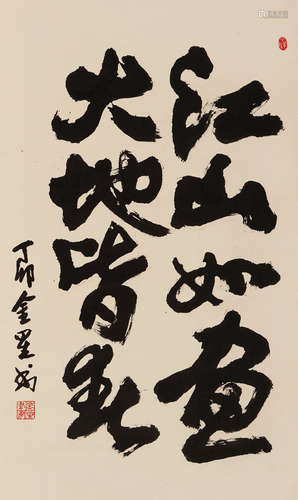 江山如画
大地皆春
丁卯金星书